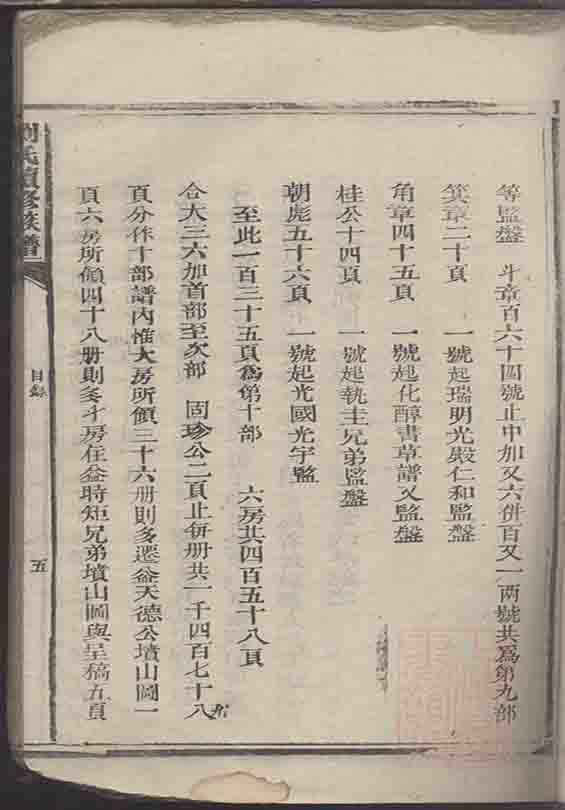 等監盤　斗章百六十四號止中加又六併百又一兩號共爲第九部
箕章二十頁　一號起瑞明光殿仁和監盤
角章四十五頁　一號起化醇書草譜又監盤
桂公十四頁　一號起執圭兄弟監盤
朝彪五十六頁　一號起光國光宇監
至此一百三十五頁爲第十部　六房共四百五十八頁
合大三六加首部至次部　固珍公二頁止併册共一千四百七十八
頁分作十部譜內惟大房所領三十六册則多遷益天德公墳山圖一
頁六房所領四十八册則多斗房在益時矩兄弟墳山圖與呈稿五頁
劉氏續修族譜
目錄
五